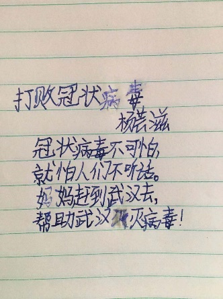 打败冠状病毒
杨若滋
冠状病毒不可怕,
就怕人们不听话。
妈妈赶到武汉去,
帮助武汉灭病毒!